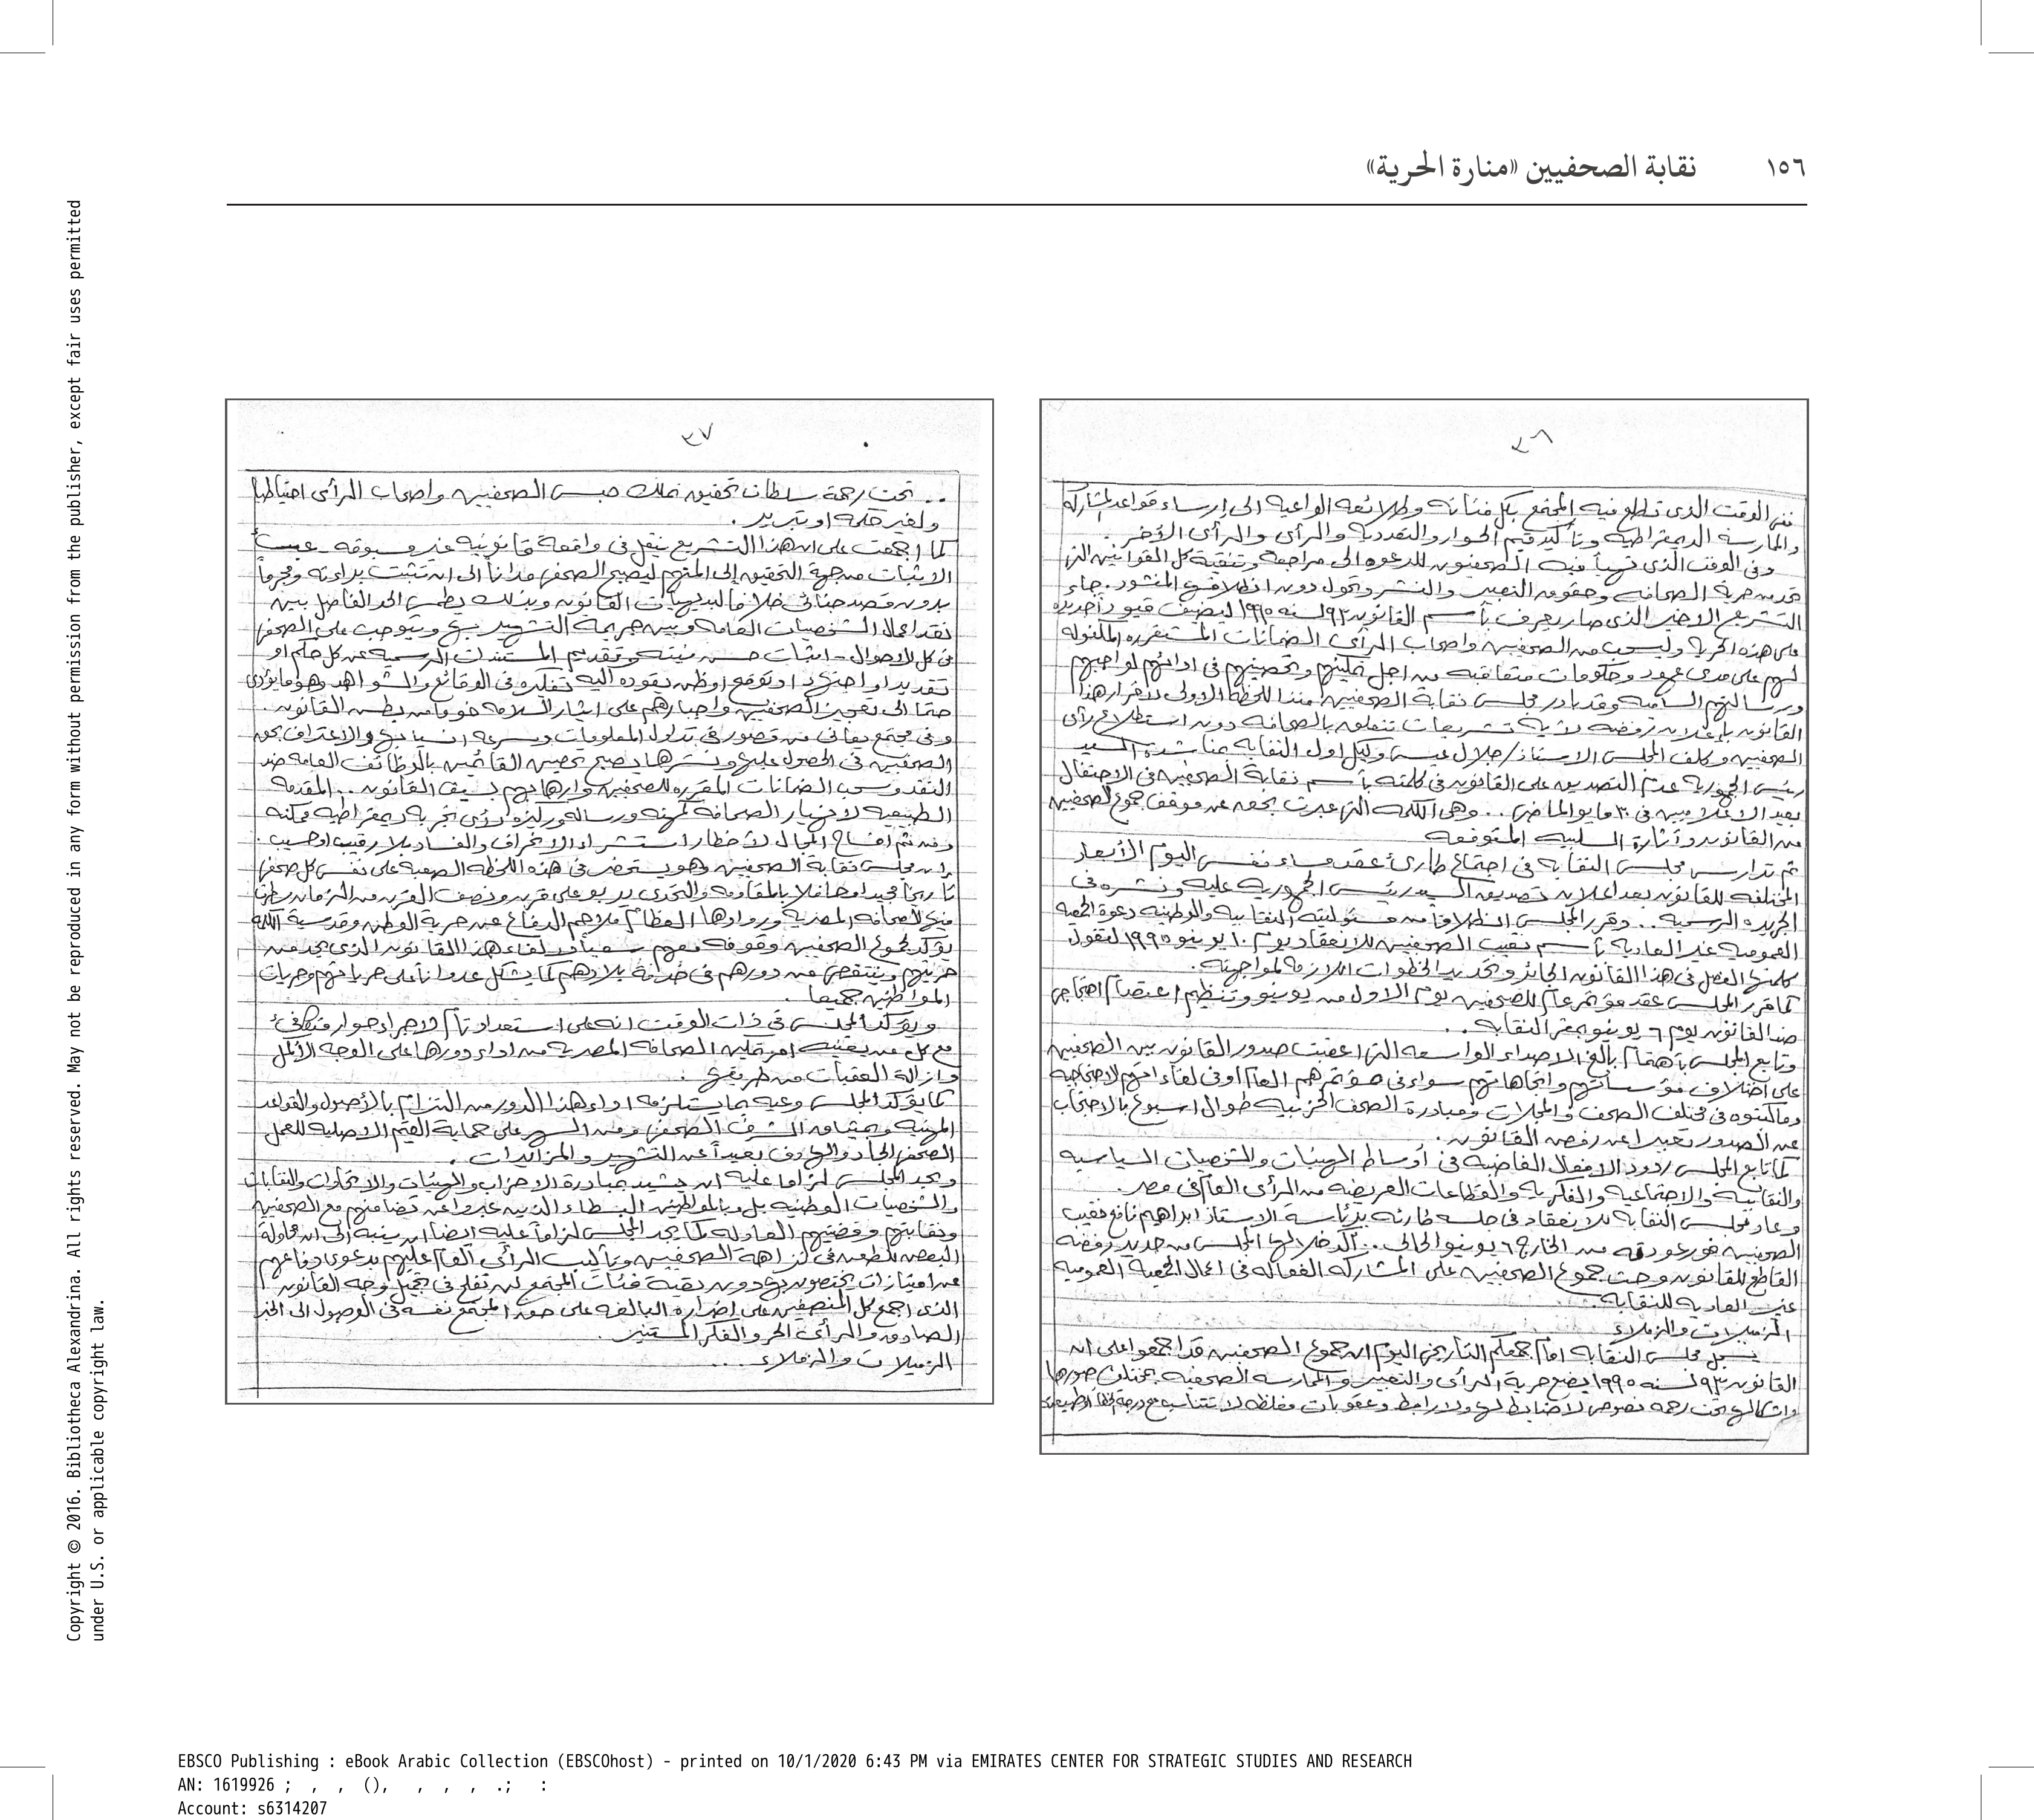 ١٥٦ نقابة الصحفيين «منارة الحرية»
٢٦
ففى الوقت الذى تطلع فيه المجتمع بكل فئاته وطلائعه الواعية الى إرساء قواعد المشاركه
والممارسة الديمقراطيه وتأكيد قيم الحوار والتعدديه والرأى والرأى الآخر.
وفى الوقت الذى تهيأ فيه الصحفيون للدعوه الى مراجعة وتنقية كل القوانين التى
تحد من حرية الصحافه وحقوق التعبير والنشر وتحول دون انطلاقها المنشود. جاء
التشريع الاخير الذى صار يعرف بأسم القانون ٩٣ لسنه ١٩٩٥ ليضيف قيود أجديده
على هذه الحرية وليسحب من الصحفيين واصحاب الرأى الضمانات المستقره المكفوله
لهم على مدى عهود وحكومات متعاقبه من اجل حمايتهم وتحصينهم فى ادائهم لواجبهم
ورسالتهم الساميه وقد بادر مجلس نقابة الصحفيين منذ اللحظه الاولى لاقرار هذا
القانون بإعلان رفضه لأية تشريعات تتعلق بالصحافه دون استطلاع رأى
الصحفيين وكلف المجلس الاستاذ/ جلال عيسى وكيل اول النقابه مناشدة السيد
رئيس الجمهوريه عدم التصديق على القانون فى كلمته بأسم نقابة الصحفيين فى الاحتفال
بعيد الاعلاميين فى ٣٠ مايو الماضى.. وهى الكلمه التى عبرت بحق عن موقف جموع الصحفيين
من القانون وآثارة السلبيه المتوقعه
ثم تدارس مجلس النقابه فى اجتماع طارئ عقد مساء نفس اليوم الأبعاد
المختلفه للقانون بعد اعلان تصديق السيد رئيس الجمهوريه عليه ونشره فى
الجريده الرسميه.. وقرر المجلس انطلاقا من مسئوليته النقابيه والوطنيه دعوة الجمعيه
العموميه غير العاديه بأسم نقيب الصحفيين للانعقاد يوم ١٠ يونيو ١٩٩٥ لتقول
كلمتها الفصل فى هذا القانون الجائر وتحديد الخطوات اللازمه لمواجهته.
كما قرر المجلس عقد مؤتمر عام للصحفيين يوم الاول من يونيو وتنظيم اعتصام احتجاجى
ضد القانون يوم ٦ يونيو بمقر النقابه..
وتابع المجلس بأهتمام بالغ الاصداء الواسعه التى اعقبت صدور القانون بين الصحفيين
على اختلاف مؤسساتهم واتجاهاتهم سواء فى مؤتمرهم العام او فى لقاءاتهم الاحتجاجيه
وما كتبوه فى مختلف الصحف والمجلات ومبادرة الصحف الحزبيه طوال اسبوع بالاحتجاب
عن الصدور تعبيرا عن رفض القانون.
كما تابع المجلس ردود الافعال الغاضبه فى أوساط الهيئات والشخصيات السياسيه
والنقابيه والاجتماعيه والفكريه والقطاعات العريضه من الرأى العام فى مصر.
وعاد مجلس النقابه للانعقاد فى جلسه طارئه برئاسة الاستاذ ابراهيم نافع نقيب
الصحفيين فور عودته من الخارج ٦ يونيو الحالى.. أكد خلالها المجلس من جديد رفضه
القاطع للقانون وحث جموع الصحفيين على المشاركه الفعاله فى اعمال الجمعيه العموميه
غير العاديه للنقابه.
الزميلات والزملاء
يسجل مجلس النقابه امام جمعكم التاريخى اليوم ان جموع الصحفيين قد اجمعوا على ان
القانون ٩٣ لسنه ١٩٩٥ يضع حرية الرأى والتعبير والممارسه الصحفيه بمختلف صورها
واشكالها تحت رحمه نصوص لا ضابط لها ولا رابط وعقوبات مغلظه لا تتناسب مع درجة الخطأ
٢٧
.. تحت رحمة سلطات تحقيق تملك حبس الصحفيين واصحاب الرأى احتياطيا
ولغير حكمه او تبرير.
كما اجمعت على ان هذا التشريع ينقل فى واقعة قانونيه غير مسبوقه - عبء
الاثبات من جهة التحقيق إلى المتهم ليصبح الصحفى مدانا الى ان تثبت براءته ومجرماً
بدون قصد جنائى خلافا لبديهيات القانون وبذلك يطمس الحد الفاصل بين
نقد اعمال الشخصيات العامه وبين جريمة التشهير بها ويتوجب على الصحفى
فى كل الاحوال - اثبات حسن نيته وتقديم المستندات الرسميه عن كل حكم او
تقدير او اجتهاد او توقع او ظن يقوده اليه تفكيره فى الوقائع والشواهد وهو ما يؤدى
حتما الى تعجيز الصحفيين واجبارهم على ايثار السلامه خوفا من بطش القانون.
وفى مجتمع يعانى من قصور فى تداول المعلومات وسرعه انسيابها والاعتراف بحق
الصحفيين فى الحصول عليها ونشرها يصبح تحصين القائمين بالوظائف العامه ضد
النقد وسحب الضمانات المقرره للصحفيين وارهابهم بسيف القانون.. المقدمه
الطبيعيه لانهيار الصحافه كمهنه ورساله وركيزه لأى تجربه ديمقراطيه ممكنه
ومن ثم افساح المجال لأخطار استشراء الانحراف والفساد بلا رقيب او حسيب.
إن مجلس نقابة الصحفيين وهو يستحضر فى هذه اللحظه الصعبه على نفس كل صحفى
تاريخا مجيدا حافلا بالمقاومه والتحدى يربو على قرن ونصف القرن من الزمان
للصحافه المصريه وروادها العظام ملاحم الدفاع عن حرية الوطن وقدسية الكلمه
يؤكد لجموع الصحفيين وقوفه معهم سعيا لالغاء هذا القانون الذى يحد من
حريتهم وينتقص من دورهم فى خدمة بلادهم كما يشكل عدوانا على حرياتهم وحريات
المواطنين جميعا.
ويؤكد المجلس فى ذات الوقت انه على استعداد تام لاجراء حوار متكافئ
مع كل من يعنيه امر تمكين الصحافه المصريه من اداء دورها على الوجه الأكمل
وازالة العقبات من طريقها.
كما يؤكد المجلس وعيه بما يستلزمه اداء هذا الدور من التزام بالأصول والقواعد
المهنيه وبميثاق الشرف الصحفى ومن السهر على حماية القيم الاصليه للعمل
الصحفى الجاد والهادف بعيداً عن التشهير والمزايدات.
ويجد المجلس لزاما عليه ان يشيد بمبادرة الاحزاب والهيئات والاتحادات والنقابات
والشخصيات الوطنيه بل وبالمواطنين البسطاء الذين عبروا عن تضامنهم مع الصحفيين
ونقابتهم وقضيتهم العادله كما يجد المجلس لزاماً عليه ايضا ان ينبه إلى ان محاولة
البعض للطعن فى نزاهة الصحفيين وتأليب الرأى العام عليهم بدعوى دفاعهم
عن امتيازات يختصون بها دون بقية فئات المجتمع لن تفلح فى تجميل وجه القانون
الذى اجمع كل المنصفين على اضراره البالغه على حق المجتمع نفسه فى الوصول الى الخبر
الصادق والرأى الحر والفكر المستنير.
الزميلات والزملاء...
Copyright © 2016. Bibliotheca Alexandrina. All rights reserved. May not be reproduced in any form without permission from the publisher, except fair uses permitted
under U.S. or applicable copyright law.
EBSCO Publishing : eBook Arabic Collection (EBSCOhost) - printed on 10/1/2020 6:43 PM via EMIRATES CENTER FOR STRATEGIC STUDIES AND RESEARCH
AN: 1619926 ; , , (), , , , .; :
Account: s6314207